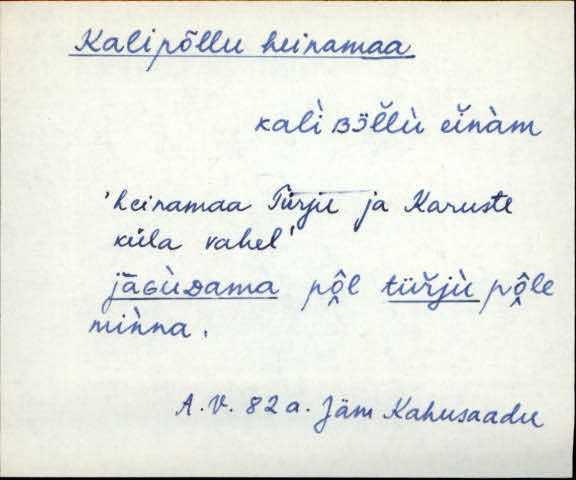 Kalipõllu heinamaa
kaĺì ʙɔ̈l̆l̆ù eĭnàm
'heinamaa Türju ja Karuste
küla vahel'
jāɢùᴅama pə̂l türjù pə̂le
mìǹna.
A.V. 82 a. Jäm Kahusaadu